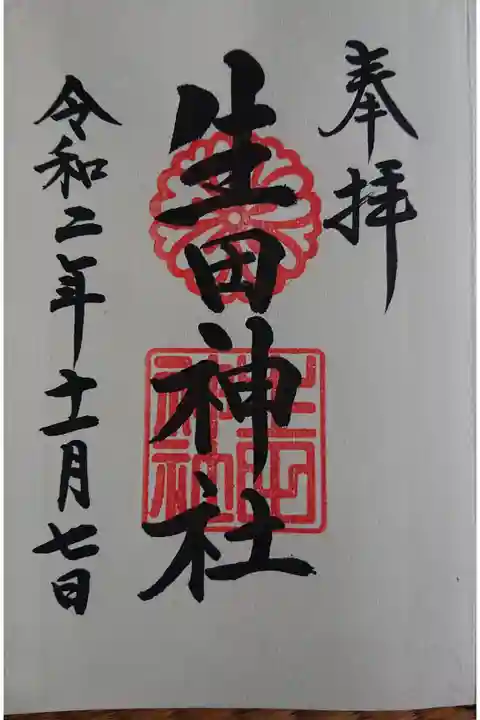 奉拝
生田神社
生田神社
令和二年十一月七日